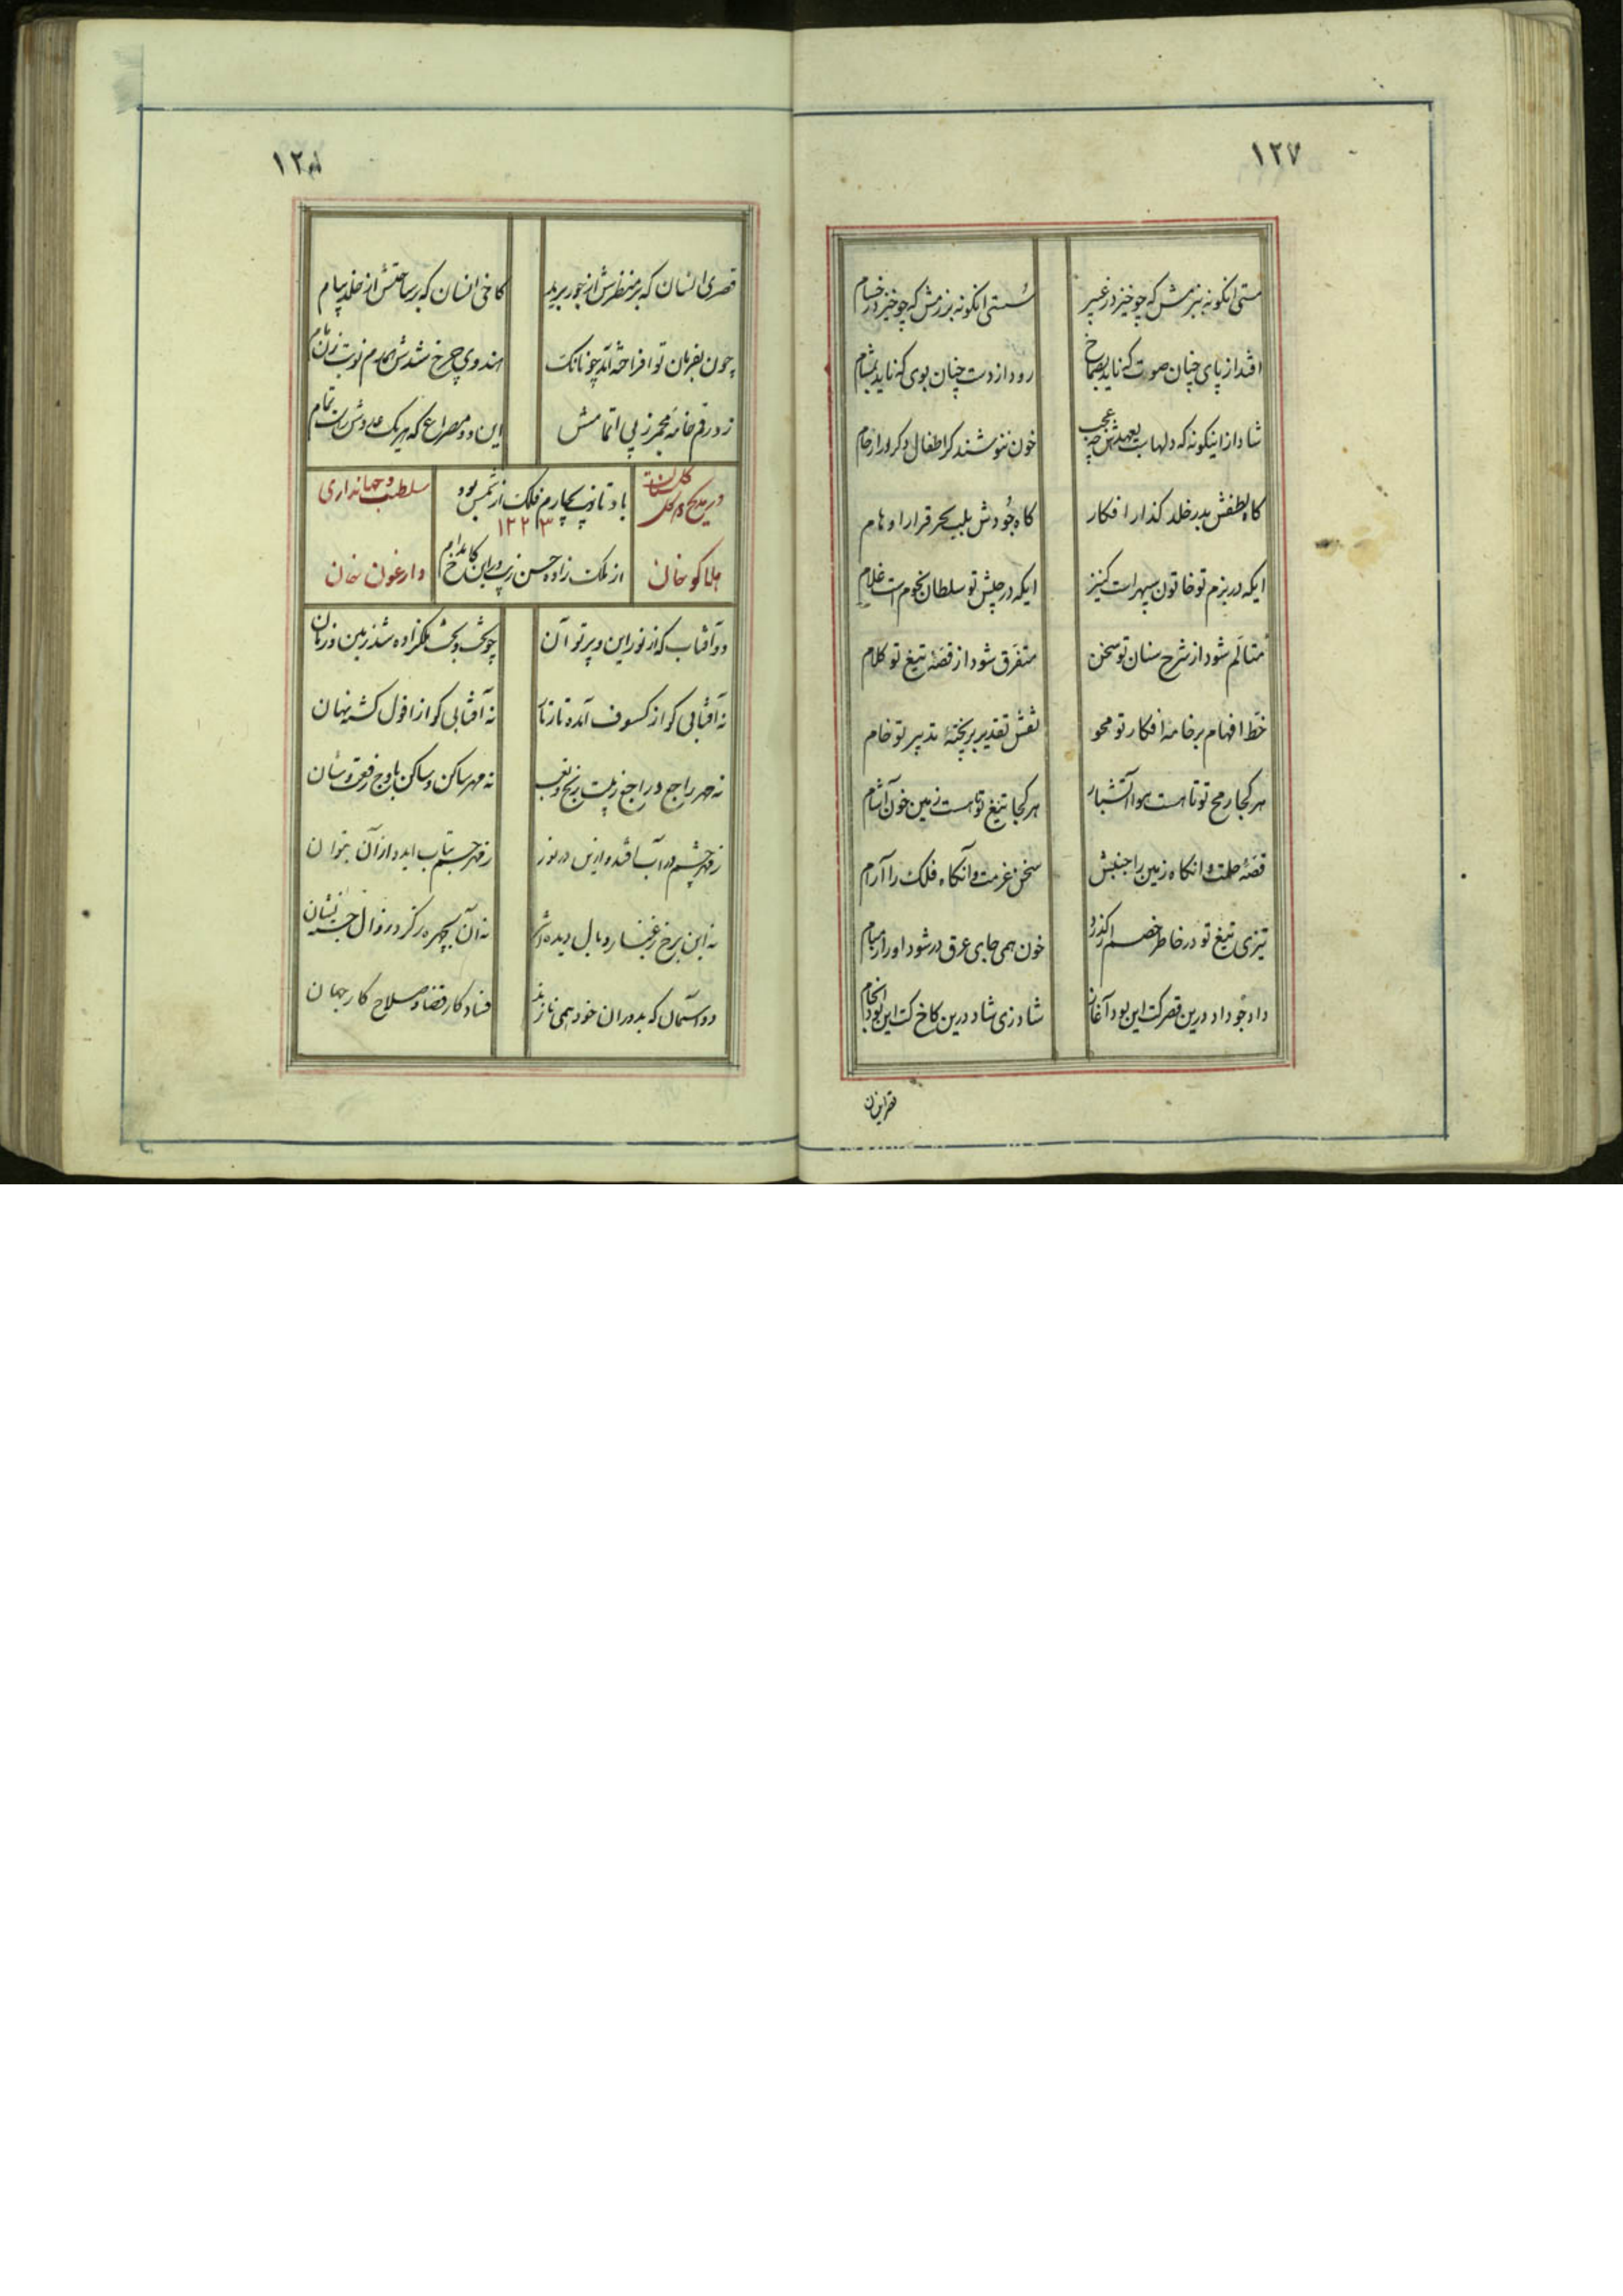 ۱۲۷
مستی انگونه ببزمش که چو خیزد ز عبیر
سستی انگونه برزمش که چو خیزد ز حسام
افتد از پای چنان صوت که ناید بصماخ
رود از دست چنان بوی که ناید بمشام
شاد از اینگونه که دلها بعهدش چه عجب
خون ننوشند کر اطفال دکر در ارحام
کاه لطفش بدر خلد کذار افکار
کاه جودش بلب بحر قرار اوهام
ایکه در بزم تو خاتون سپهر است کنیز
ایکه در جیش تو سلطان نجوم است غلام
متالم شود از شرح سنان تو سخن
متفرق شود از قصهٔ تیغ تو کلام
خط افهام بر خامهٔ افکار تو محو
نقش تقدیر بر پختهٔ تدبیر تو خام
هر کجا رمح تو تا هست هوا آتشبار
هر کجا تیغ تو تا هست زمین خون آشام
قصهٔ حلمت و انکاه زمین را جنبش
سخن عزمت و آنکاه فلک را آرام
تیزی تیغ تو در خاطر خصم ار کذرد
خون همی جای عرق در شود او را ز مسام
داد جو داد درین قصر کت این بود آغاز
شاد زی شاد درین کاخ کت این بود انجام
قصر اینسان
قصری انسان که بر منظرش از حور برید
کاخی انسان که بر ساحتش از خلد پیام
چون بفرمان تو افراخته آمد چونانک
هندوی چرخ شدش همدم نوبت زن بام
زد رقم خامهٔ مجمر ز پی اتمامش
این دو مصراع که هر یک
باد تا زیب چارم فلک از شمس بود
۱۲۲۳
از ملک زاده حسن زیب در این کاخ مدام
در مدح
سلطنت و جهانداری
هلاکو خان
وارغون خان
دو آفتاب که از نور این و پرتو آن
چو تخت و بخت ملکزاده شد زمین و زمان
نه آفتابی کو از کسوف آمده تار
نه آفتابی کو از افول کشته نهان
نه مهر راجع و راجع ز پست برنج و تعب
نه مهر ساکن و ساکن باوج رفعت و شان
ز مهر چشم در آب افتد و ازین در نور
ز مهر جسم بتاب اید و از آن بتوان
نه این برخ ز غبار وبال دیده اثر
نه آن بچهره ز کرد زوال جسته نشان
دو آسمان که بدوران خود همی نازند
فساد کار قضا و صلاح کار جهان